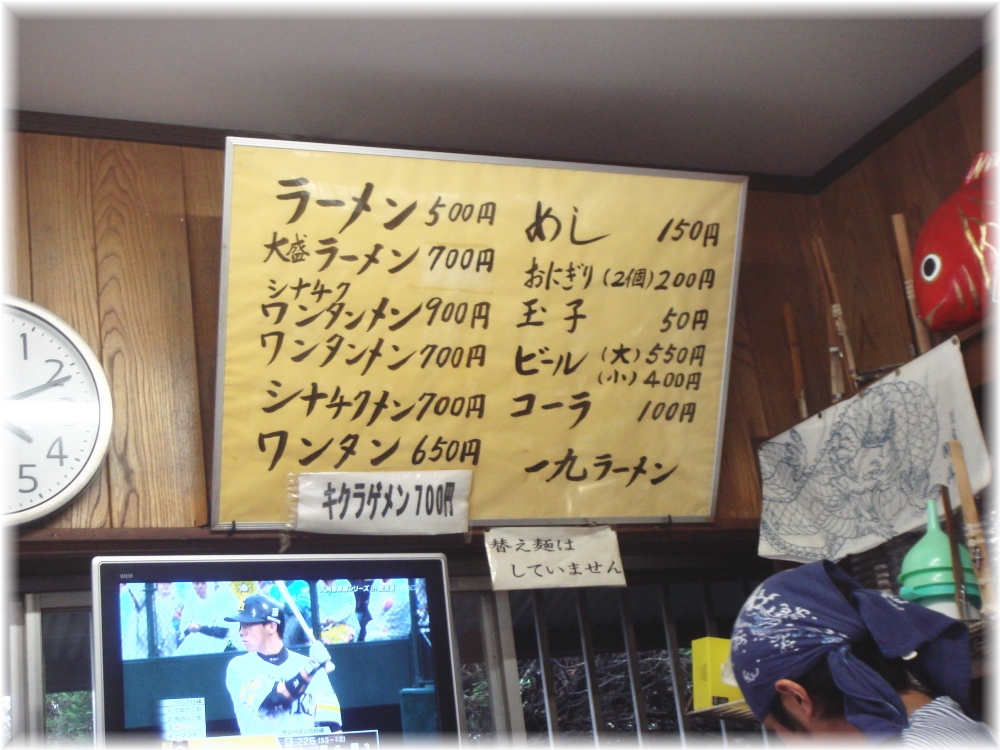 ラーメン 500円
大盛ラーメン 700円
シナチク
ワンタンメン 900円
ワンタンメン 700円
シナチクメン 700円
ワンタン 650円
キクラゲメン 700円
めし 150円
おにぎり (2個) 200円
玉子 50円
ビール (大) 550円
(小) 400円
コーラ 100円
一九ラーメン
替え麺は
していません
1
2
4
5